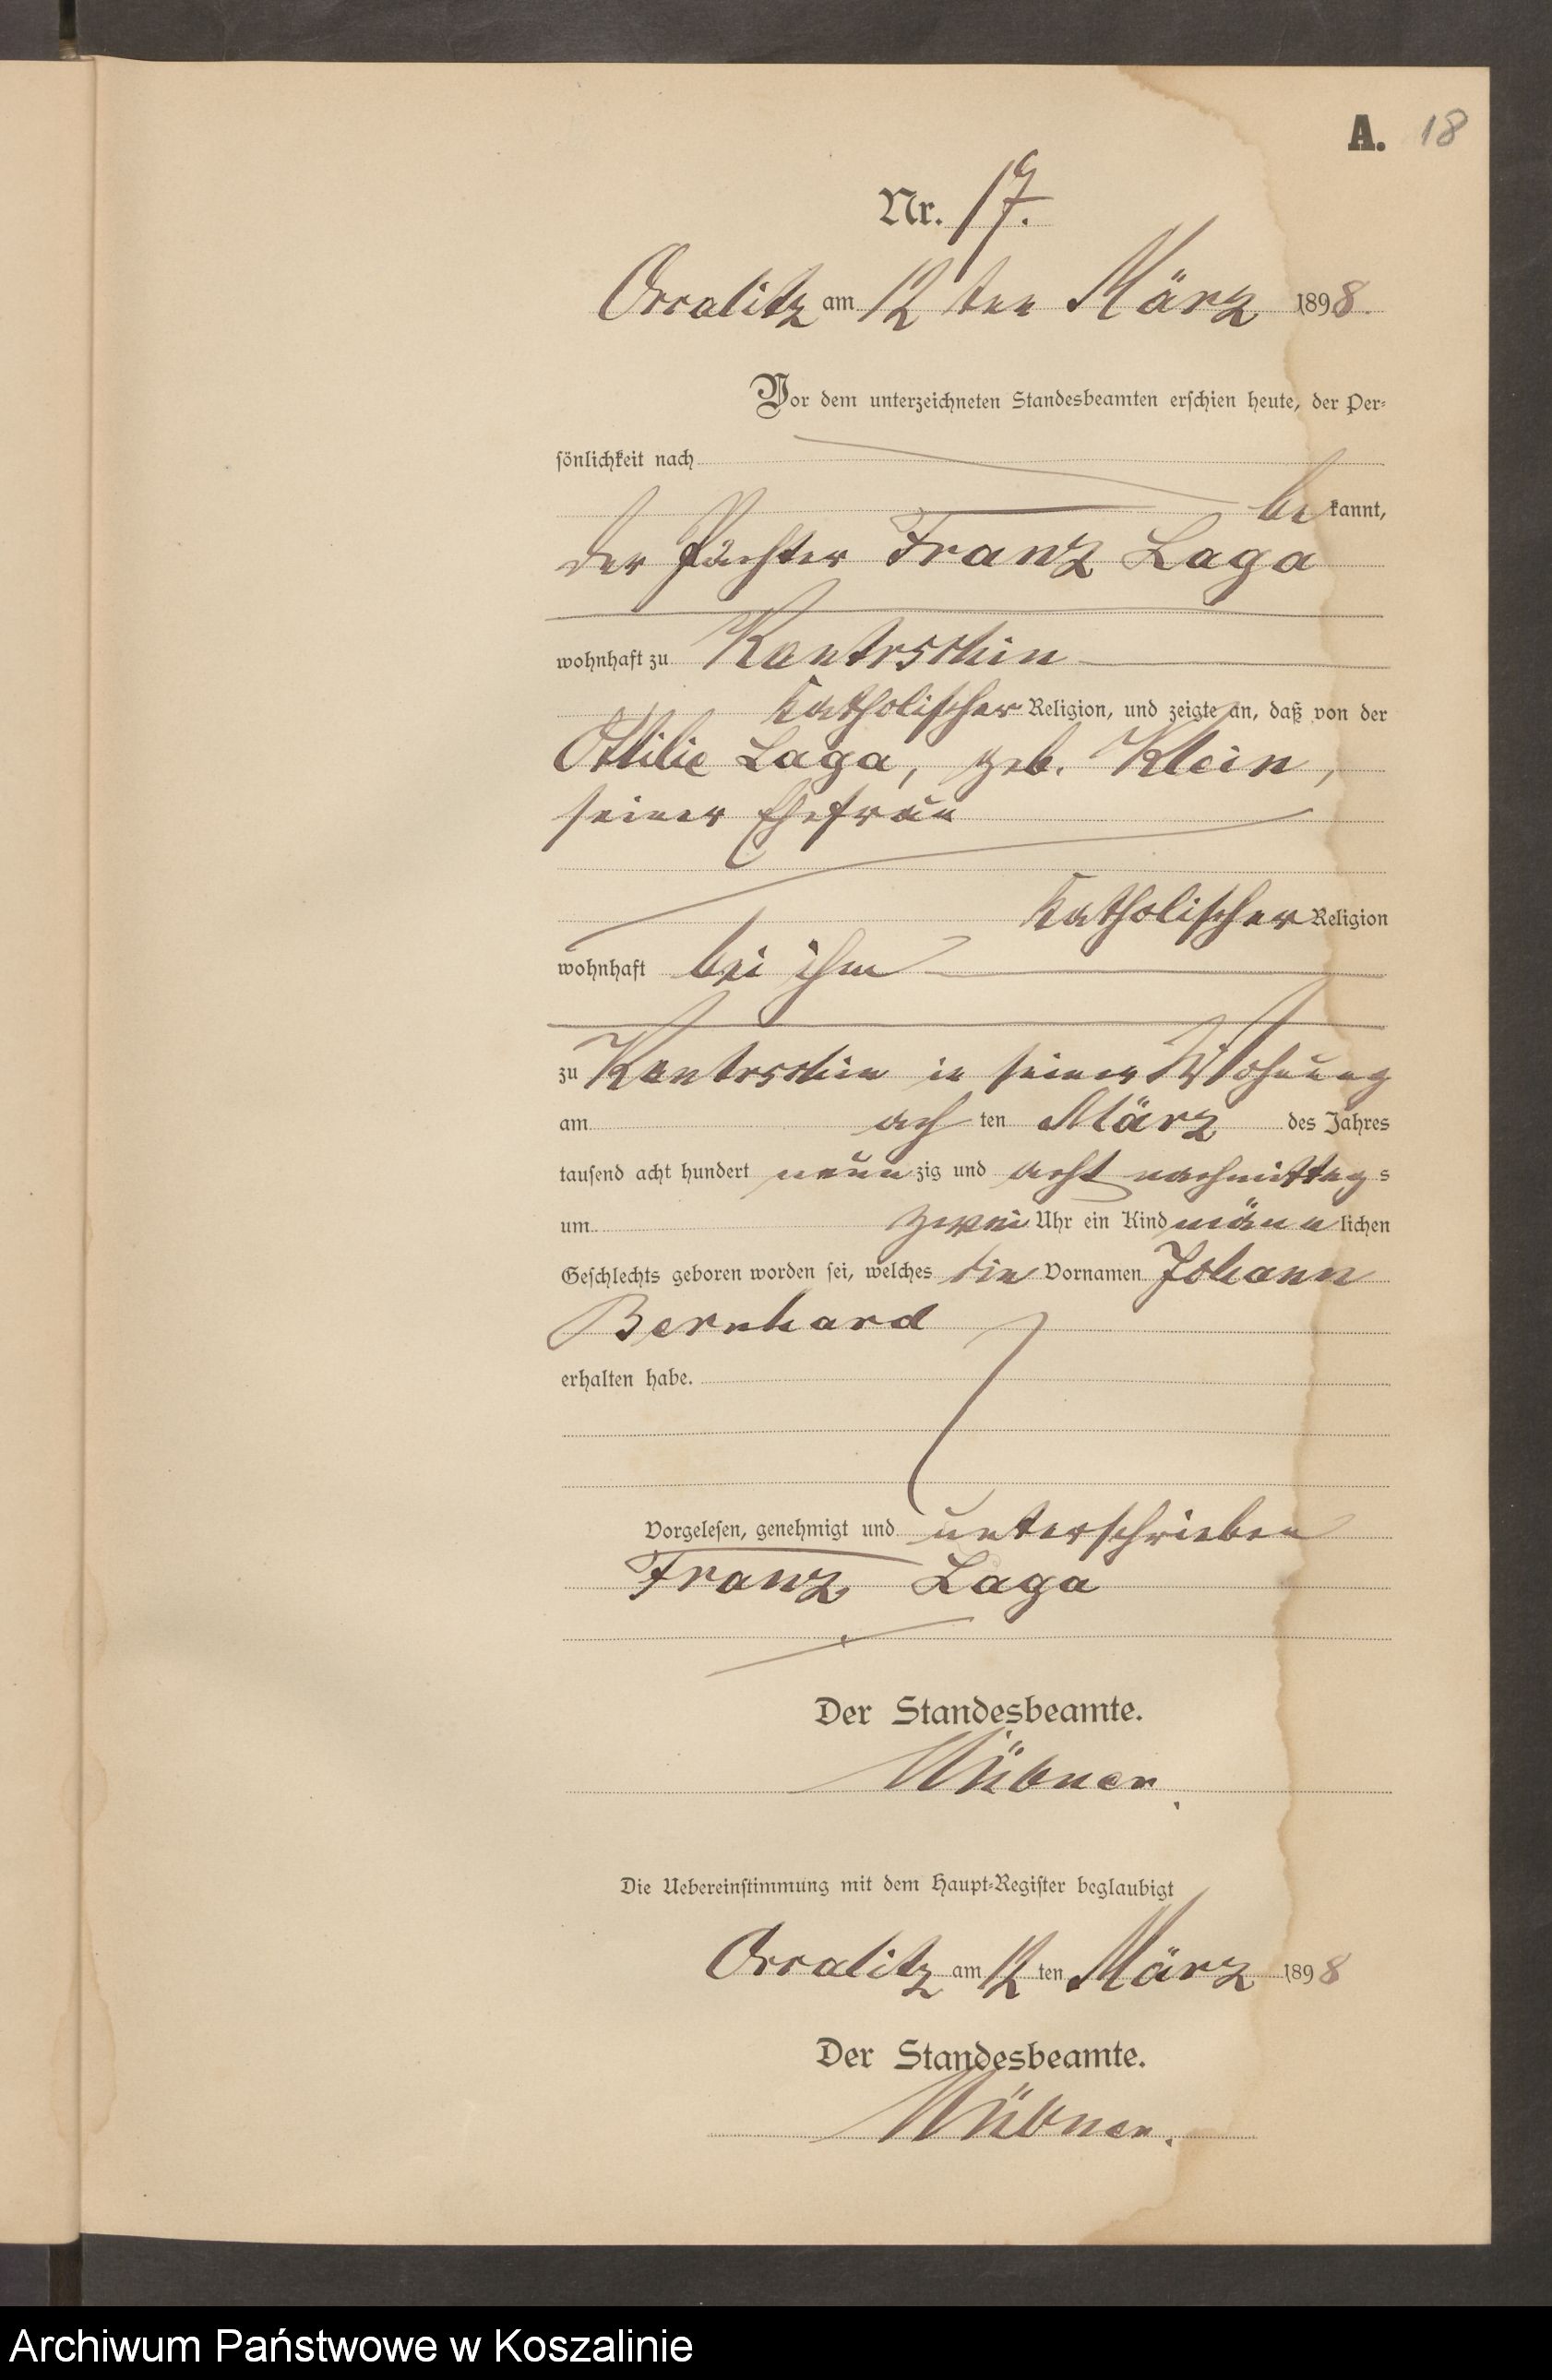 A. 18
Nr. 17.
Orralitz am 12 ten März 1898.
Vor dem unterzeichneten Standesbeamten erschien heute, der Per-
sönlichkeit nach
be kannt,
der Pächter Franz Laga
wohnhaft zu Kantrschin
katholischer Religion, und zeigte an, daß von der
Ottilie Laga, geb. Klein,
seiner Ehefrau
katholischer Religion
wohnhaft bei ihm
zu Kantrschin in seiner Wohnung
am ach ten März des Jahres
tausend acht hundert neun zig und acht nachmittag s
um zwei Uhr ein Kind männ lichen
Geschlechts geboren worden sei, welches die Vornamen Johann
Bernhard
erhalten habe.
Vorgelesen, genehmigt und unterschrieben
Franz Laga
Der Standesbeamte.
Hübner.
Die Uebereinstimmung mit dem Haupt-Register beglaubigt
Orralitz am 12 ten März 1898
Der Standesbeamte.
Hübner.
Archiwum Państwowe w Koszalinie